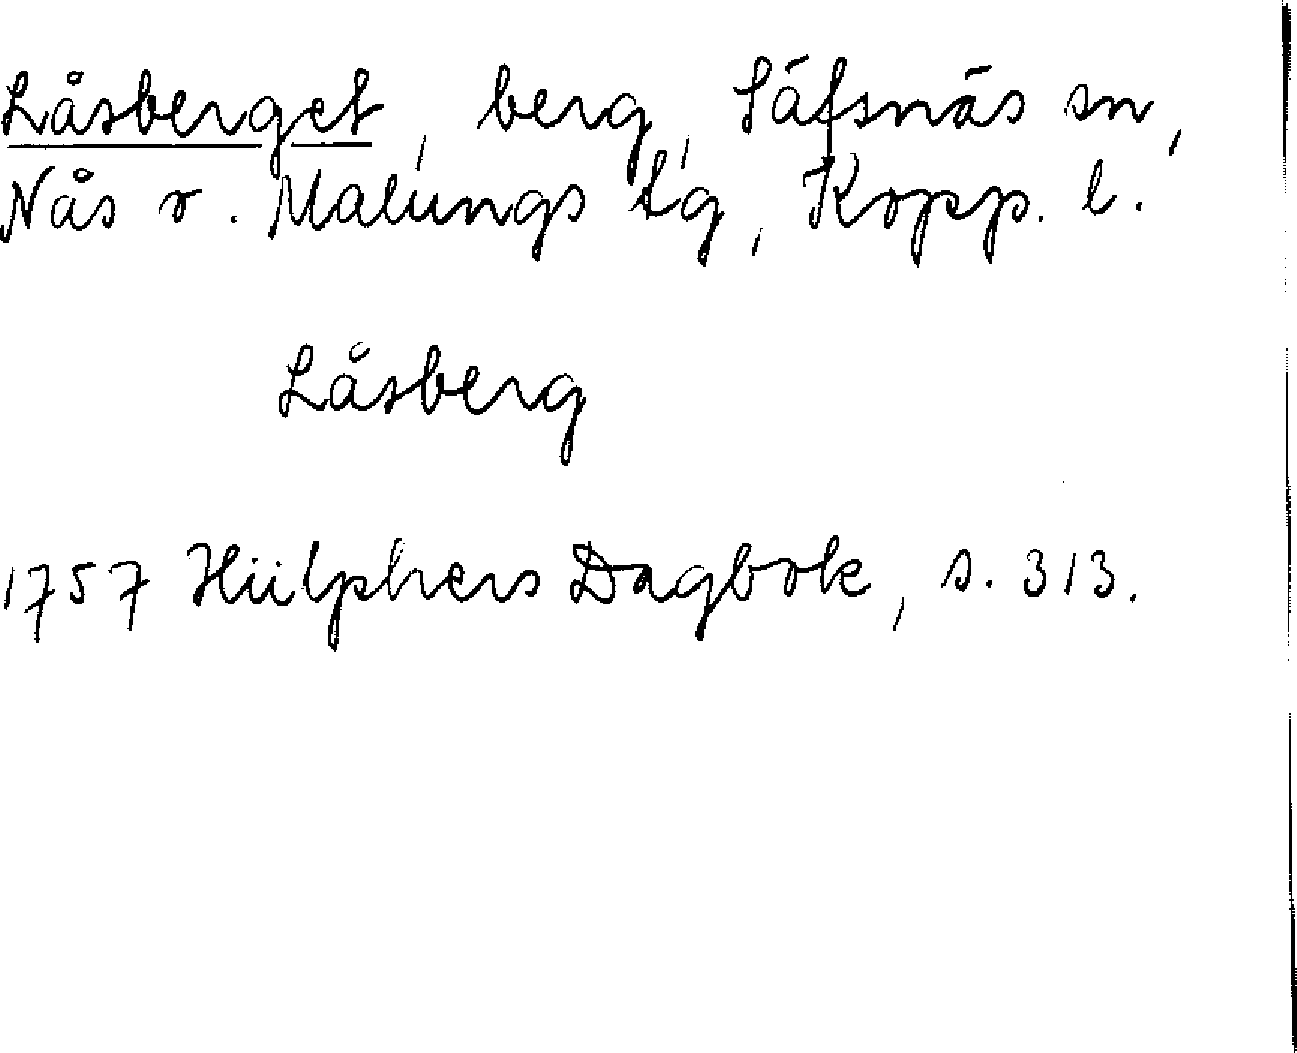 Låsberget, berg, Säfsnäs sn,
Nås o. Malungs tg, Kopp. l.
Låsberg
1757 Hülphers Dagbok, s. 313.